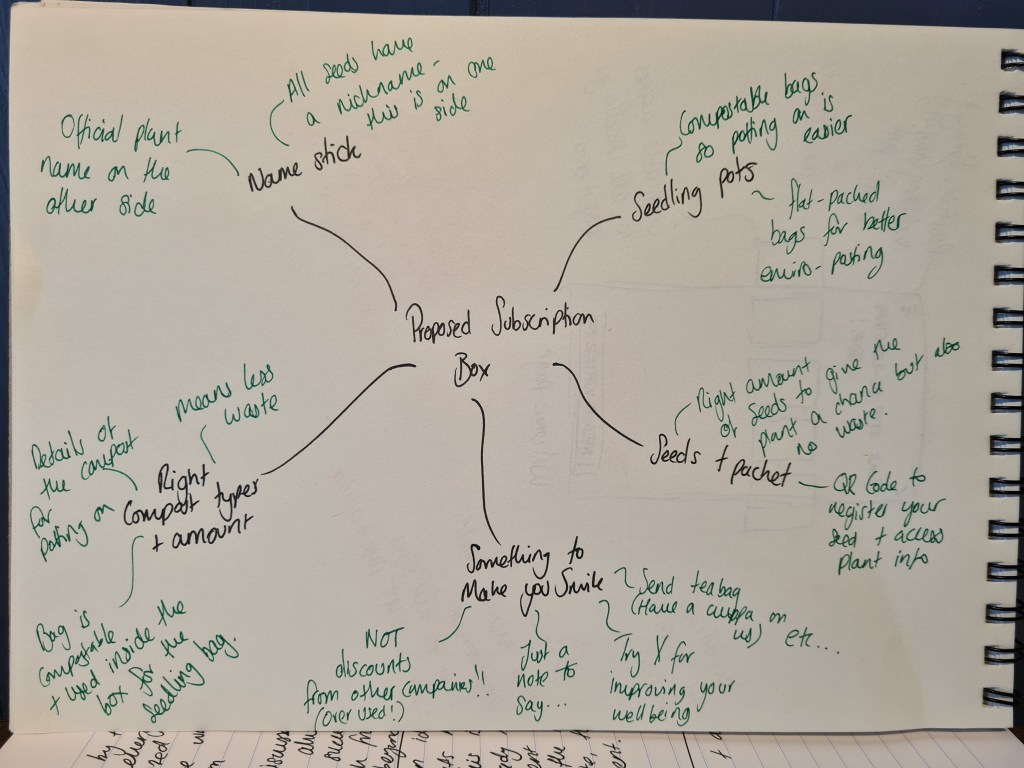 All seeds have
a nickname -
this is on one
side
Official plant
name on the
other side
Name stick
Compostable bags
so potting on is
easier
Seedling pots
flat-packed
bags for better
enviro-posting
Proposed Subscription
Box
Right amount
of seeds to give the
plant a chance but also
no waste.
Seeds + packet
QR Code to
register your
seed + access
plant info
means less
waste
Details of
the compost
for
potting on
Right
Compost types
+ amount
Bag is
compostable
+ used inside the
box for the
seedling bag.
Something to
Make you Smile
Send teabag
(Have a cuppa on
us) etc...
NOT
discounts
from other companies!!
(over used!)
Just a
note to
say...
Try X for
improving your
wellbeing